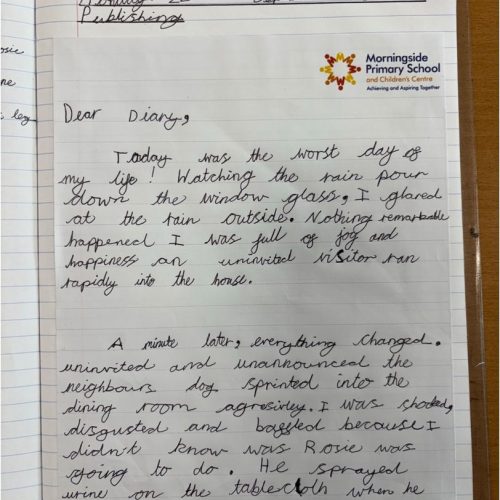 Publishing
Morningside
Primary School
and Children's Centre
Achieving and Aspiring Together
Dear Diary,
Today was the worst day of
my life! Watching the rain pour
down the window glass, I glared
at the rain outside. Nothing remarkable
happened I was full of jog and
happiness an uninvited visitor ran
rapidly into the house.
A minute later, everything changed.
uninvited and unannounced the
neighbours dog sprinted into the
dining room agresivley. I was shocked,
disgusted and baggled because I
didn't know was Rosie was
going to do. He sprayed
urine on the tablecloth when he